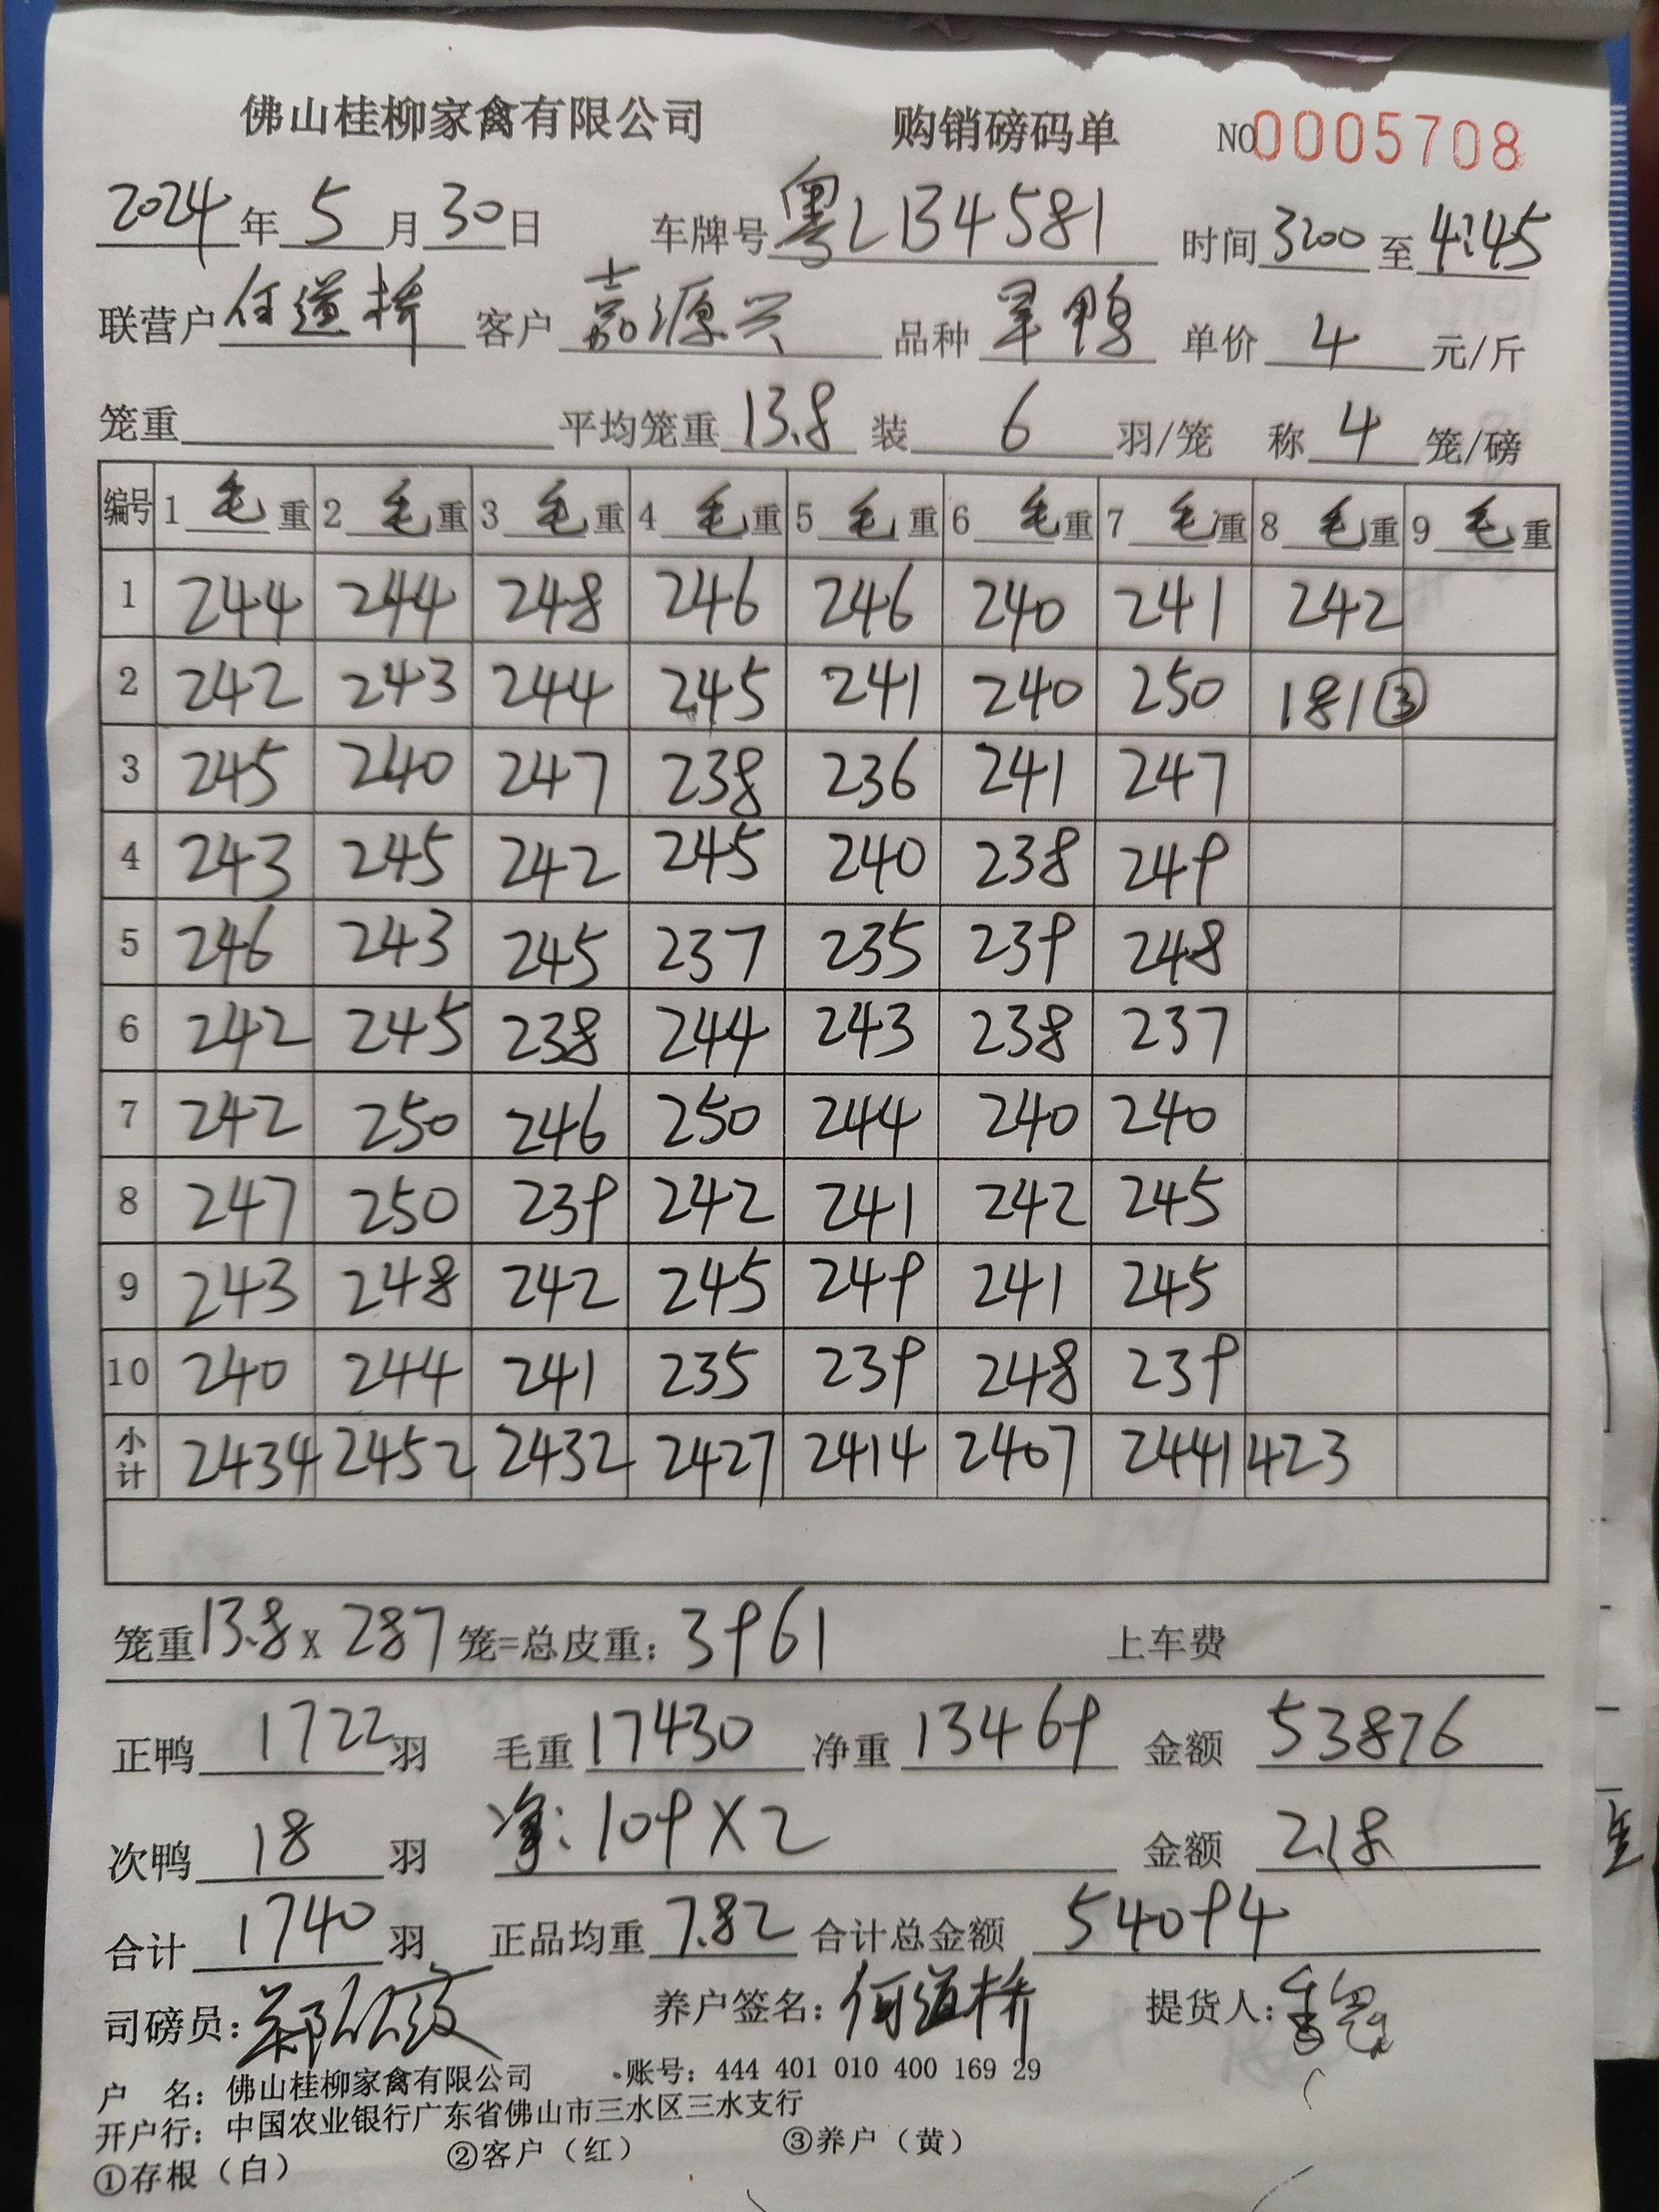 佛山桂柳家禽有限公司 购销磅码单 NO0005708
2024年5月30日 车牌号粤LB34581 时间3:00至4:45
联营户何道桥 客户嘉源兴 品种旱鸭 单价4元/斤
笼重 平均笼重13.8装6羽/笼 称4笼/磅
编号 1毛重 2毛重 3毛重 4毛重 5毛重 6毛重 7毛重 8毛重 9毛重
1 244 244 248 246 246 240 241 242
2 242 243 244 245 241 240 250 181③
3 245 240 247 238 236 241 247
4 243 245 242 245 240 238 249
5 246 243 245 237 235 239 248
6 242 245 238 244 243 238 237
7 242 250 246 250 244 240 240
8 247 250 239 242 241 242 245
9 243 248 242 245 249 241 245
10 240 244 241 235 239 248 239
小计 2434 2452 2432 2427 2414 2407 2441 423
笼重13.8x287笼=总皮重：3961 上车费
正鸭1722羽 毛重17430 净重13469 金额53876
次鸭18羽 净：109X2 金额218
合计1740羽 正品均重7.82 合计总金额54094
司磅员： 养户签名：何道桥 提货人：
户 名：佛山桂柳家禽有限公司 账号：444 401 010 400 169 29
开户行：中国农业银行广东省佛山市三水区三水支行
①存根（白） ②客户（红） ③养户（黄）